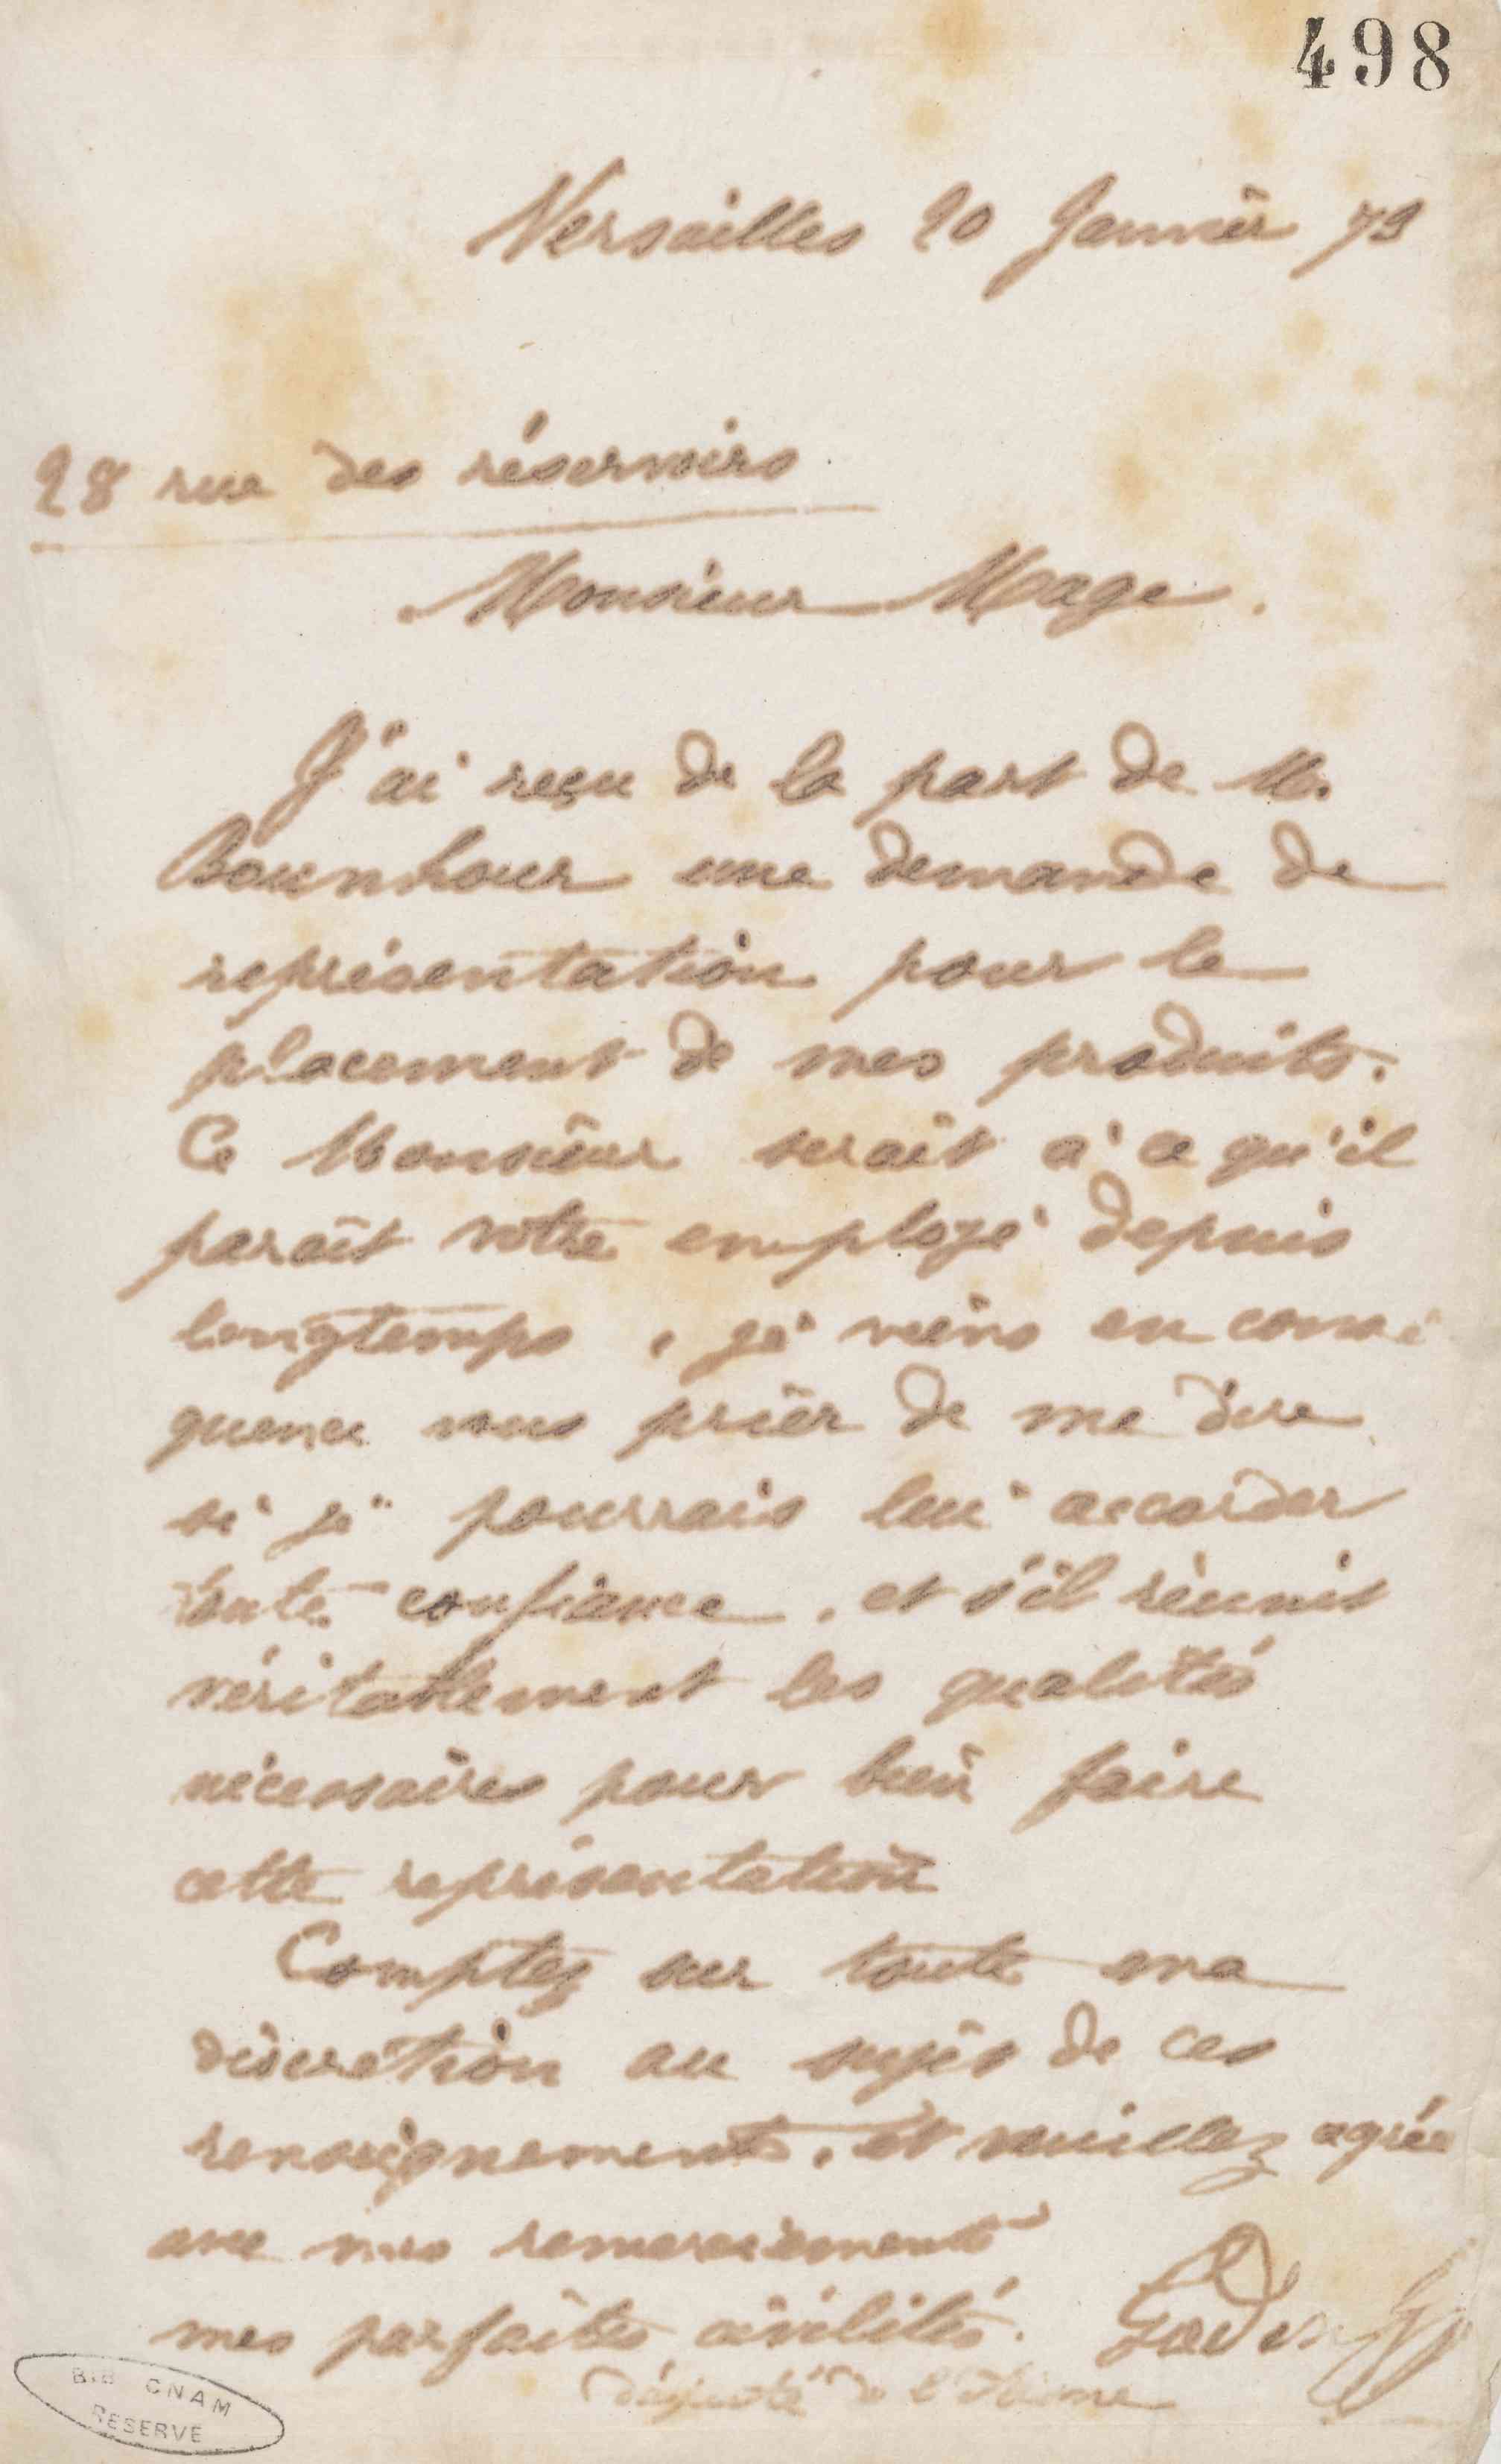 498
Versailles 20 Janvier 73
28 rue des réservoirs
Monsieur Mage.
J'ai reçu de la part de M.
Bounhour une demande de
représentation pour le
placement de mes produits.
Ce Monsieur serait à ce qu'il
paraît votre employé depuis
longtemps, je viens en consé
quence vous prier de me dire
si je pourrais lui accorder
toute confiance, et s'il réunit
véritablement les qualités
nécessaires pour bien faire
cette représentation
Comptez sur toute ma
discrétion au sujet de ces
renseignements, et veuillez agréer
avec mes remerciements
mes parfaites civilités. Godin
député de l'Aisne
BIB CNAM
RESERVE